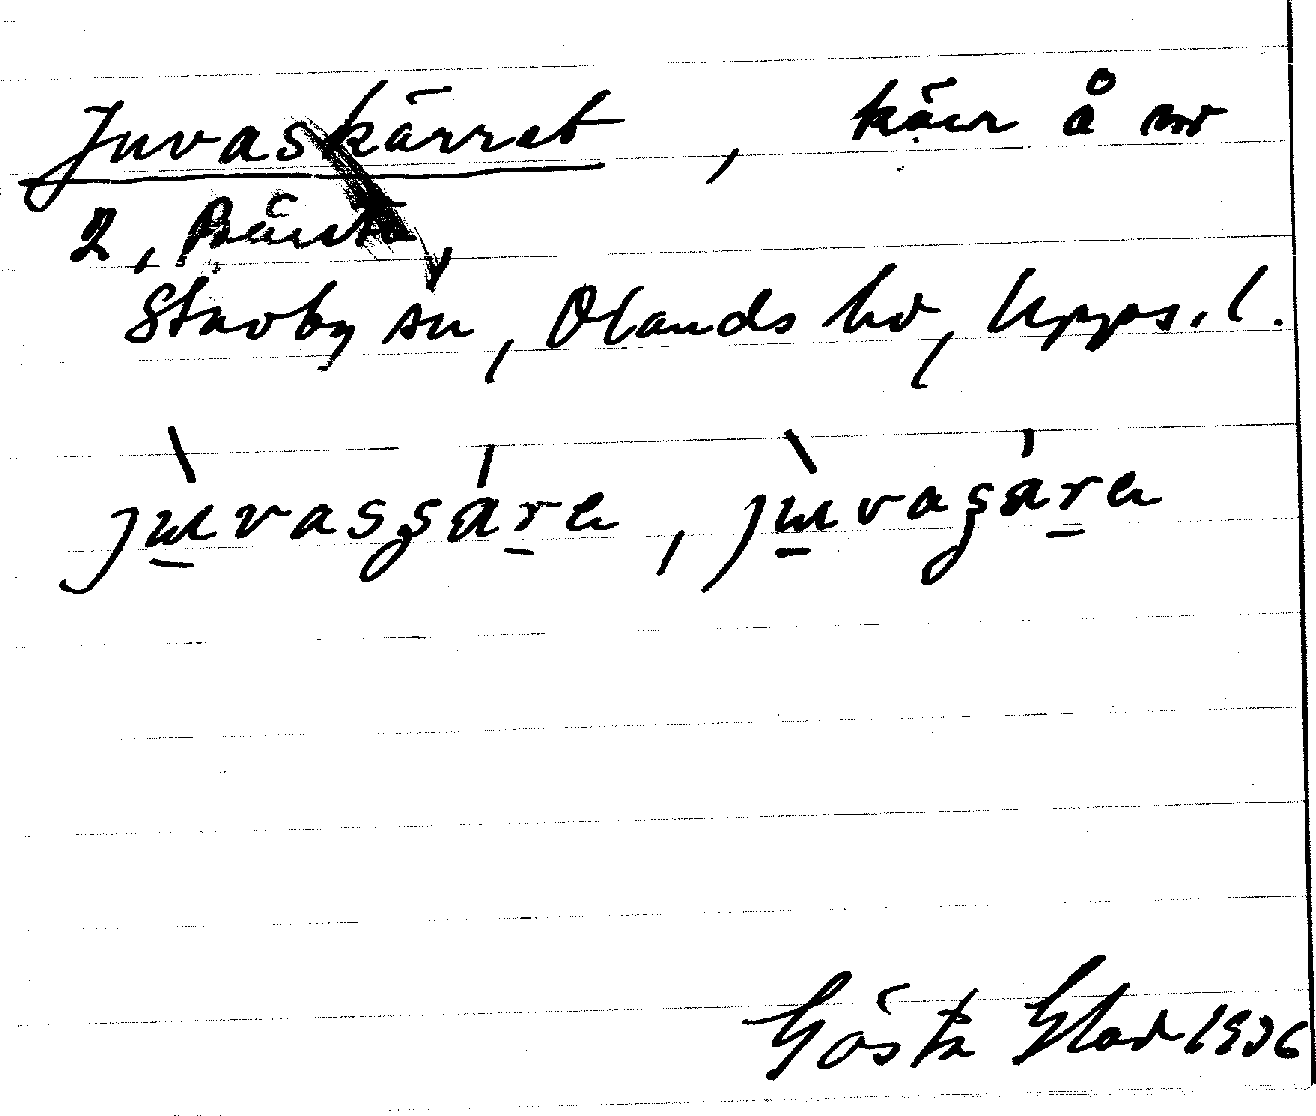 Juvaskärret, kärr å nr
2, 
Stavby sn, Olands hd, Upps. l.
jùvasʒára, jùvaʒára
Gösta Glad 1936